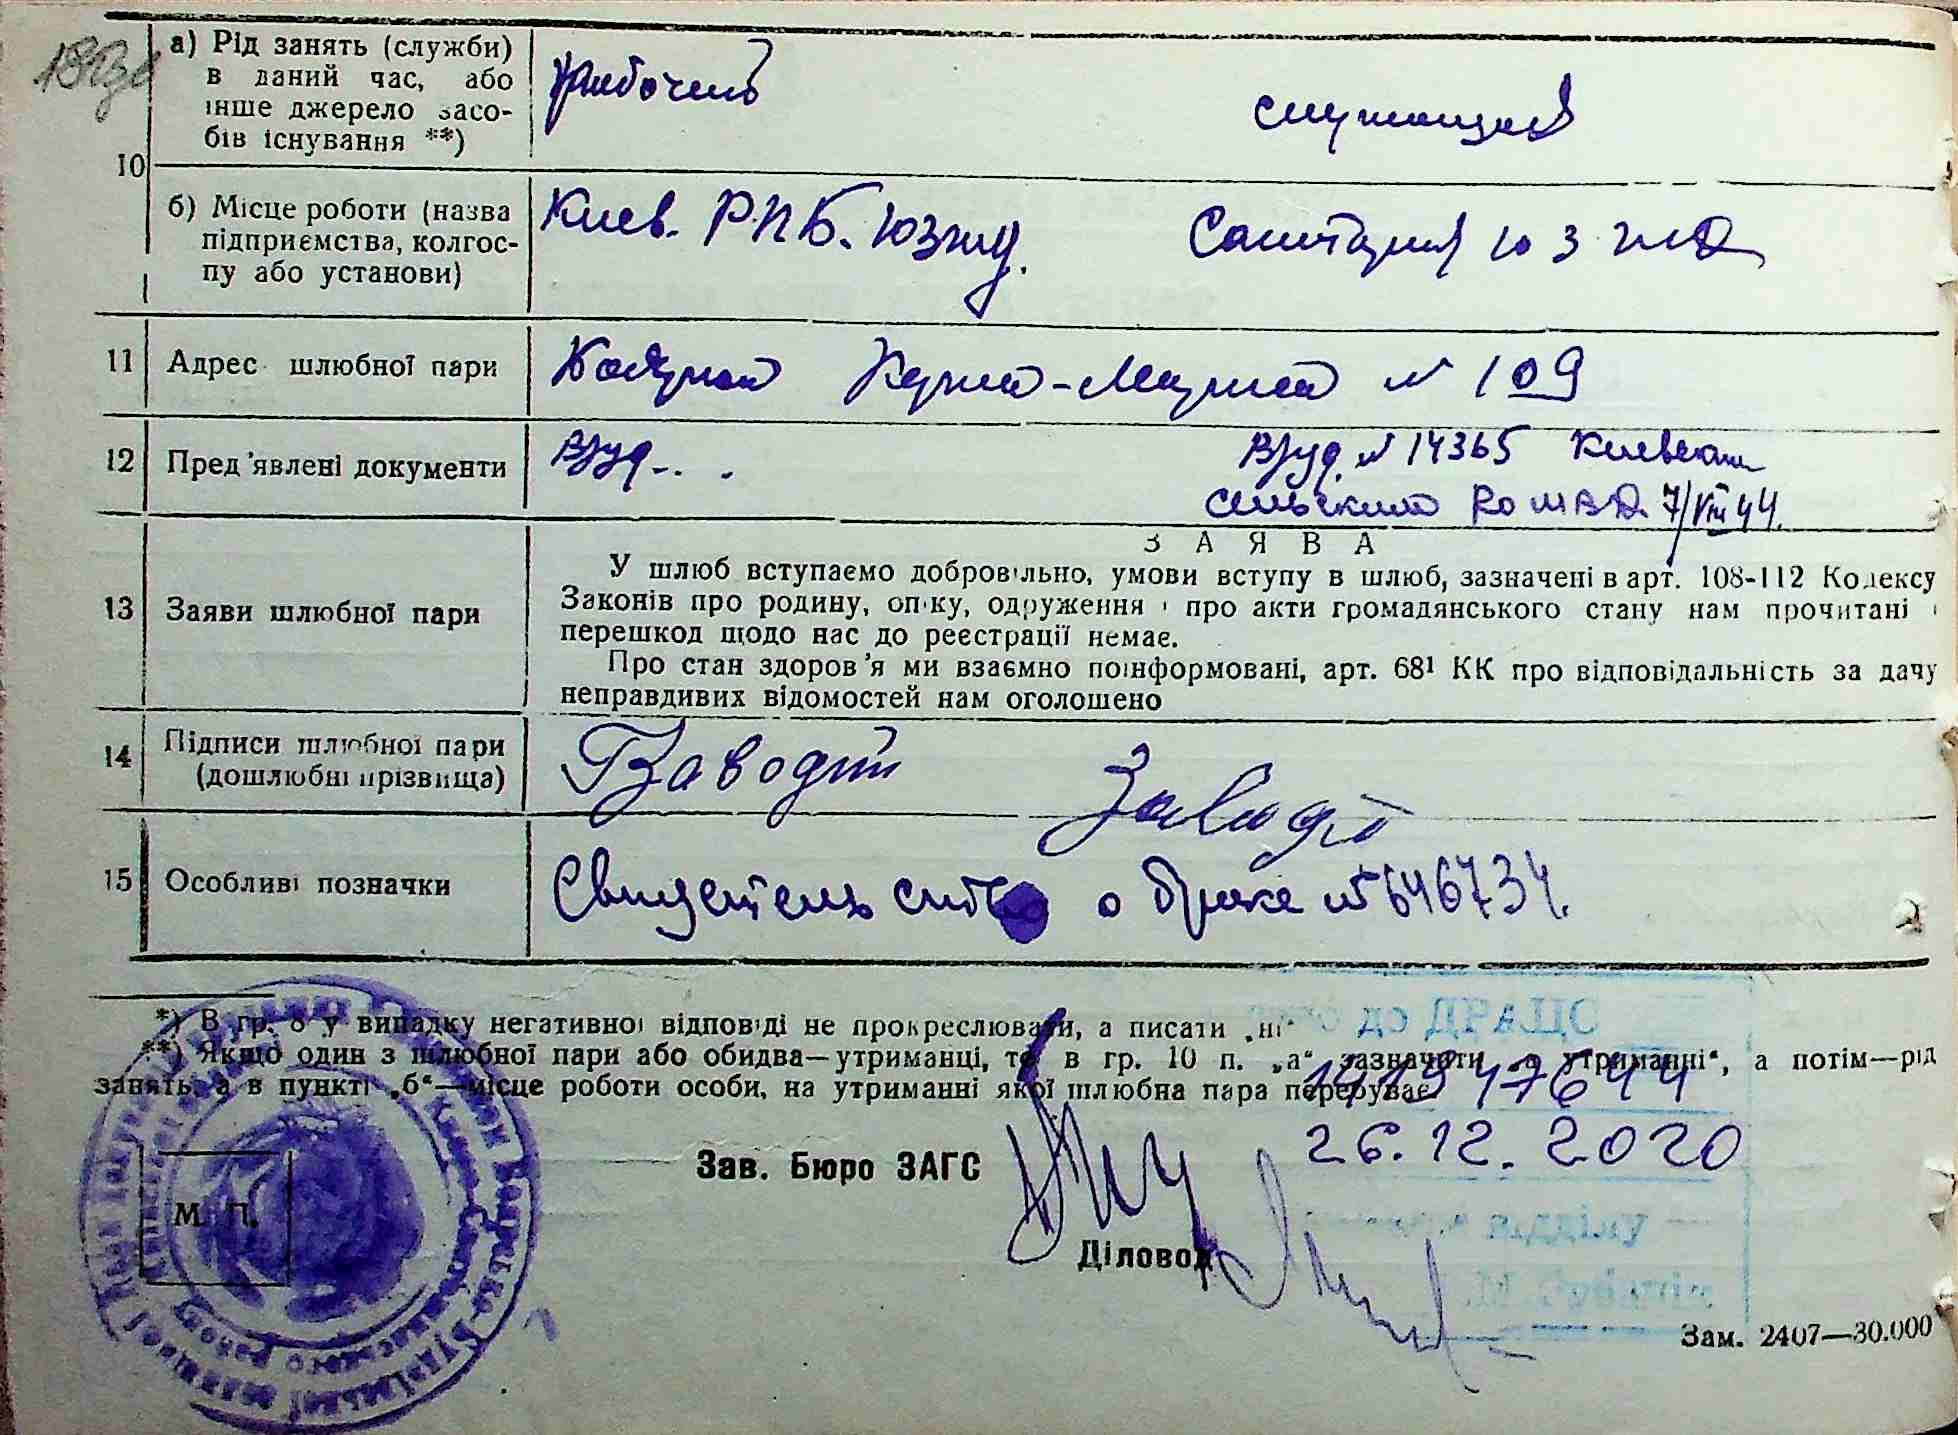 а) Рід занять (служби)
в даний час, або
інше джерело засо-
бів існування **)
рабочий
служащая
10
б) Місце роботи (назва
підприємства, колгос-
пу або установи)
Киев. Р.П.Б. ЮЗжд.
ЮЗЖД
11
Адрес шлюбної пари
№ 109
12
Пред'явлені документи
Вр уд
Вр уд. № 14365 Киевским
сельским РО МВД 7/VIII 44.
13
Заяви шлюбної пари
ЗАЯВА
У шлюб вступаємо добровільно, умови вступу в шлюб, зазначені в арт. 108-112 Кодексу
Законів про родину, опіку, одруження і про акти громадянського стану нам прочитані і
перешкод щодо нас до реєстрації немає.
Про стан здоров'я ми взаємно поінформовані, арт. 68¹ КК про відповідальність за дачу
неправдивих відомостей нам оголошено
14
Підписи шлюбної пари
(дошлюбні прізвища)
15
Особливі позначки
Свидетельство о браке № 646734.
*) В гр. 8 у випадку негативної відповіді не прокреслювати, а писати „ні“
до ДРАЦС
**) Якщо один з шлюбної пари або обидва—утриманці, то в гр. 10 п. „а“ зазначити „о утриманні“, а потім—рід
занять, а в пункті „б“—місце роботи особи, на утриманні якої шлюбна пара перебуває.
26.12.2020
Зав. Бюро ЗАГС
М. П.
відділу
Діловод
Зам. 2407—30.000